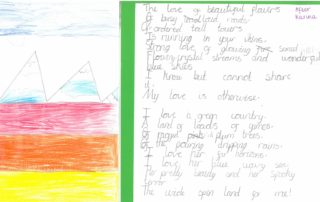 The love of beautiful flowers
Of busy woodland roads
Of ordered tall towers
Is running in your veins.
Strong love of glowing sand
Flowery crystal streams and wonderful
blue skies
I know but cannot share
it
My love is otherwise.
I love a green country.
A land of loads of
Of plum trees.
Of the pouring dripping rains.
I love her far horizons.
I love her blue wavy sea,
Her pretty beauty and her spooky
terror
The wide land for me!